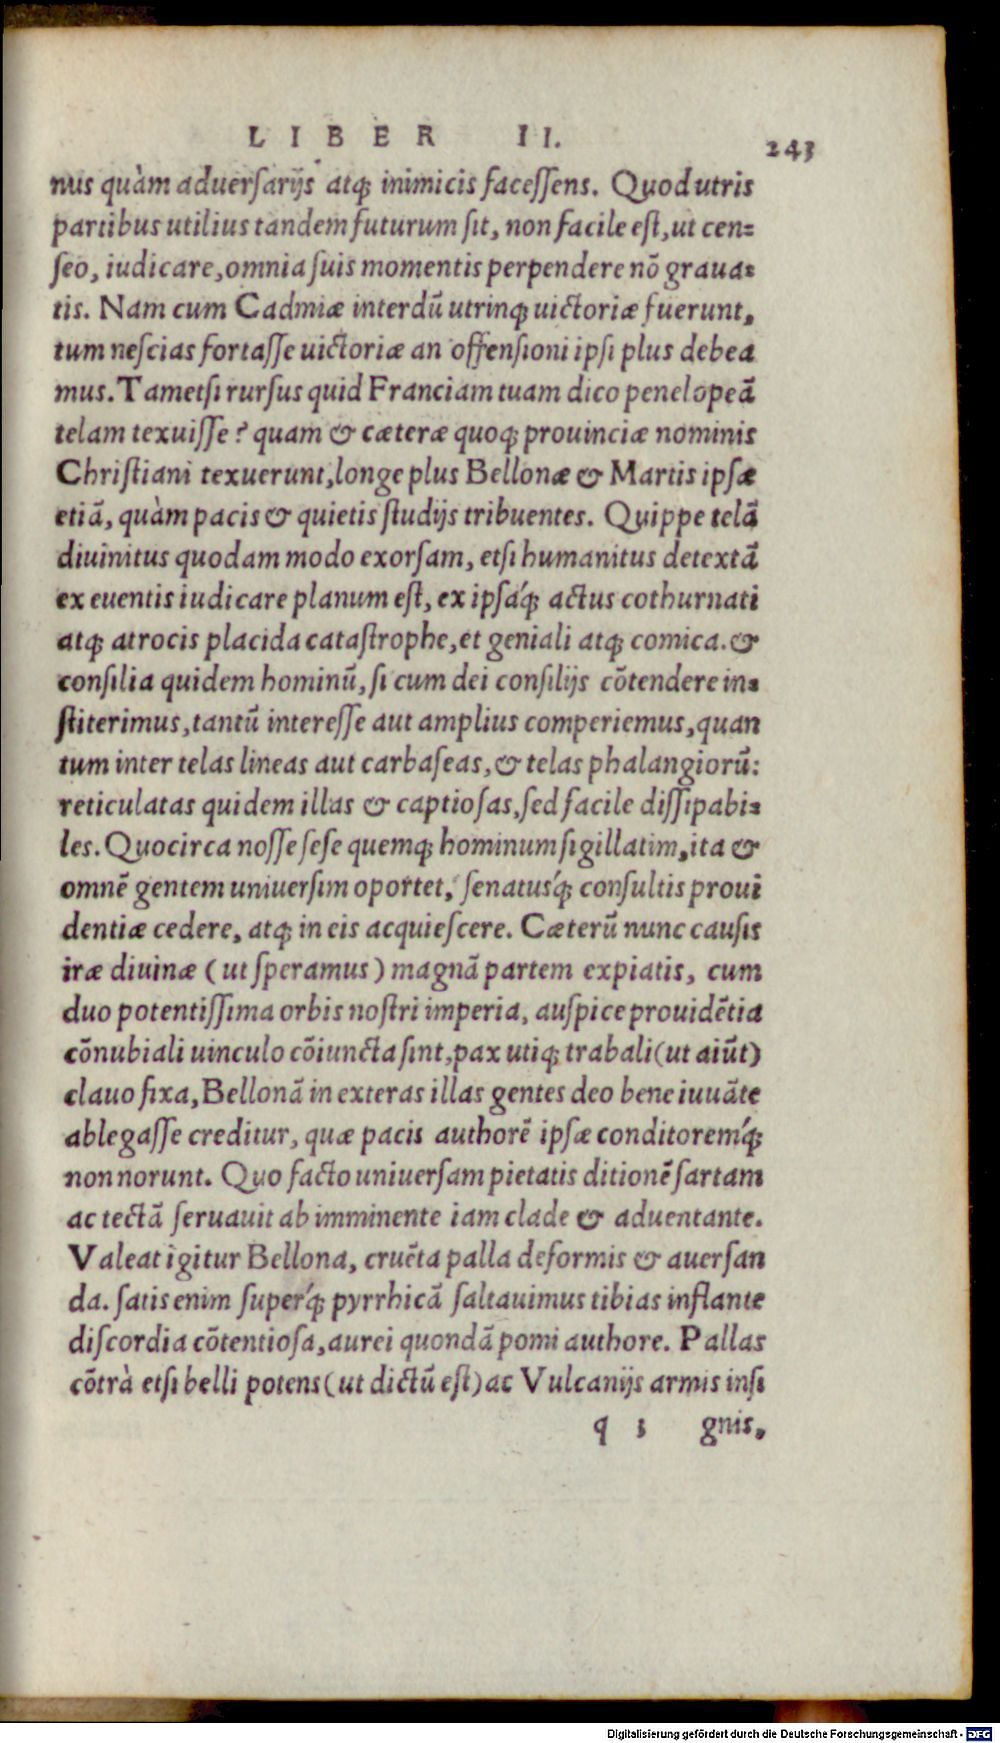 LIBER II. 243
nus quàm aduersarijs atq; inimicis facessens. Quod utris
partibus utilius tandem futurum sit, non facile est, ut cen=
seo, iudicare, omnia suis momentis perpendere nō graua=
tis. Nam cum Cadmiæ interdū utrinq; uictoriæ fuerunt,
tum nescias fortasse uictoriæ an offensioni ipsi plus debea
mus. Tametsi rursus quid Franciam tuam dico penelopeā
telam texuisse? quam & cæteræ quoq; prouinciæ nominis
Christiani texuerunt, longe plus Bellonæ & Martis ipsæ
etiā, quàm pacis & quietis studijs tribuentes. Quippe telā
diuinitus quodam modo exorsam, etsi humanitus detextā
ex euentis iudicare planum est, ex ipsáq; actus cothurnati
atq; atrocis placida catastrophe, et geniali atq; comica. &
consilia quidem hominū, si cum dei consilijs cōtendere in=
stiterimus, tantū interesse aut amplius comperiemus, quan
tum inter telas lineas aut carbaseas, & telas phalangiorū:
reticulatas quidem illas & captiosas, sed facile dissipabi=
les. Quocirca nosse sese quemq; hominum sigillatim, ita &
omnē gentem uniuersim oportet, senatusq́; consultis proui
dentiæ cedere, atq; in eis acquiescere. Cæterū nunc causis
iræ diuinæ (ut speramus) magnā partem expiatis, cum
duo potentissima orbis nostri imperia, auspice prouidētia
cōnubiali uinculo cōiuncta sint, pax utiq; trabali (ut aiūt)
clauo fixa, Bellonā in exteras illas gentes deo bene iuuāte
ablegasse creditur, quæ pacis authorē ipsæ conditoremq́;
non norunt. Quo facto uniuersam pietatis ditionē sartam
ac tectā seruauit ab imminente iam clade & aduentante.
Valeat igitur Bellona, cruēta palla deformis & auersan
da. satis enim superq́; pyrrhicā saltauimus tibias inflante
discordia cōtentiosa, aurei quondā pomi authore. Pallas
cōtrà etsi belli potens (ut dictū est) ac Vulcanijs armis insi
q 3 gnis,
Digitalisierung gefördert durch die Deutsche Forschungsgemeinschaft - DFG